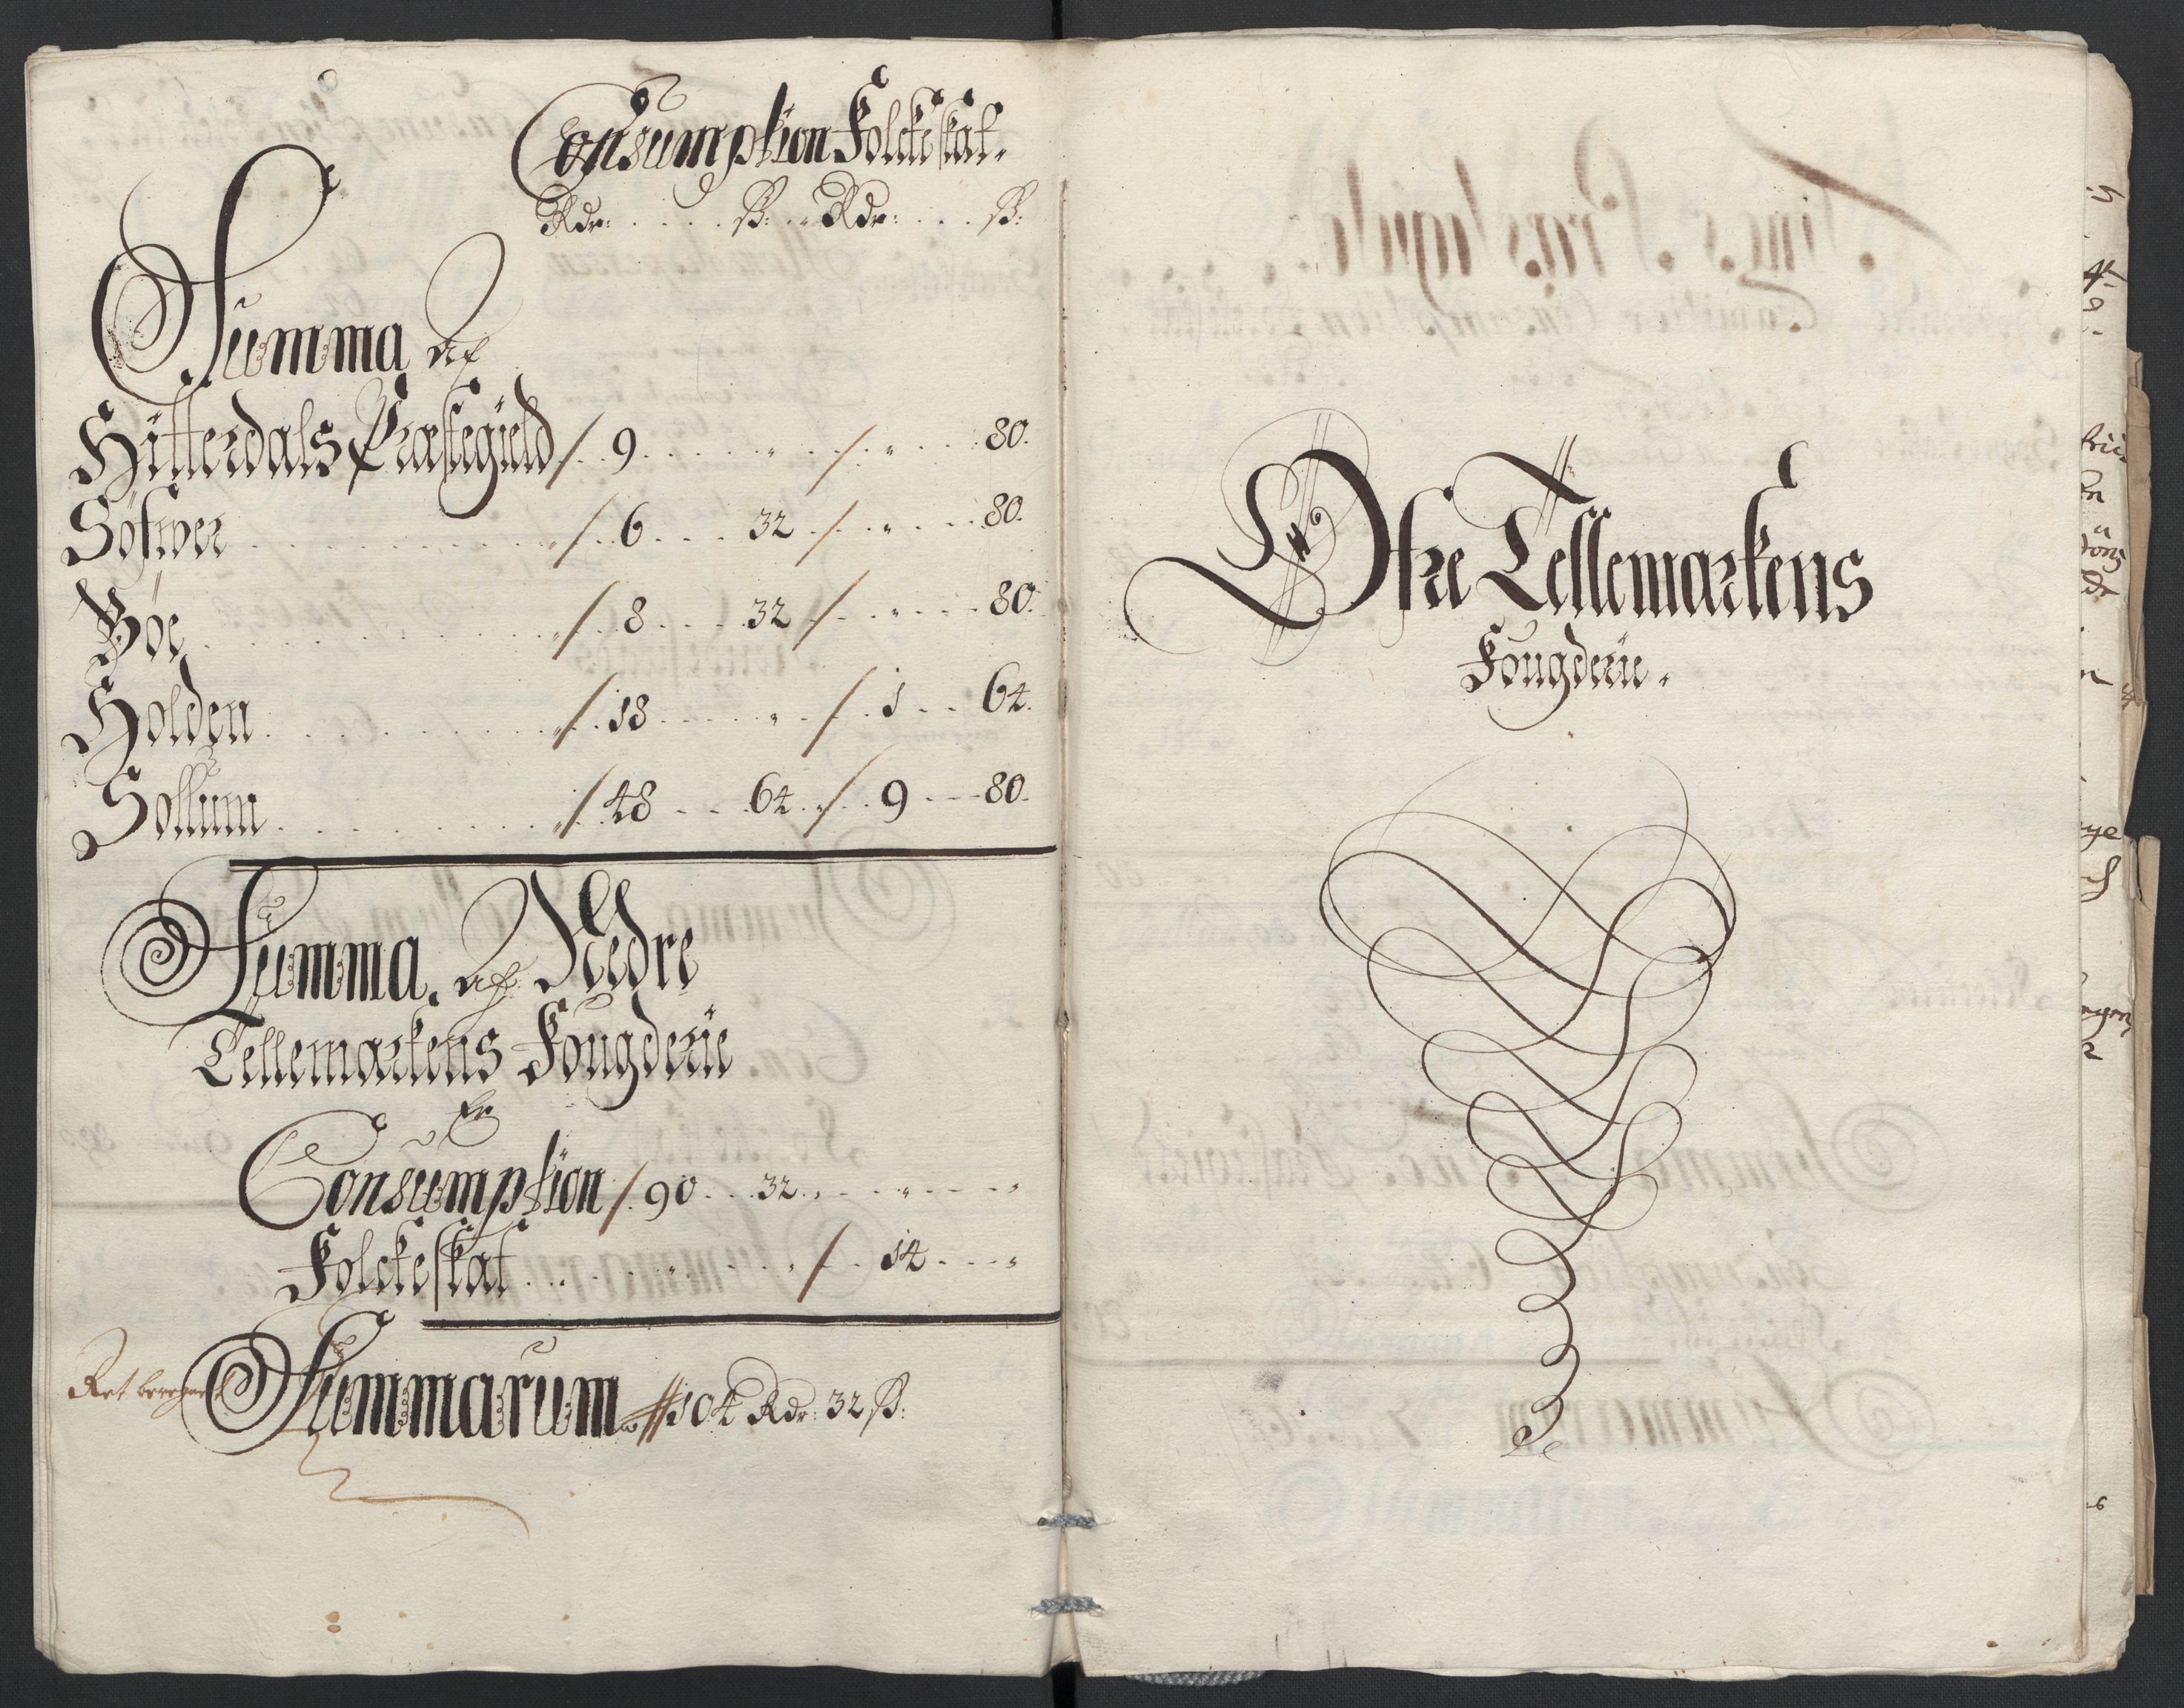 Consumption Folckeskat.
Rdr: ß: Rdr: ß:
Summa af
Hitterdals Præstegield 9 " " 80.
Söfwer 6 32 " 80.
Böe 8 32 " 80.
Holden 18 " 1 64.
Sollum 48 64 9 80.
Summa. af Nedre
Tellemarkens Fougderie
Er
Consumption 90 32 " "
Folckeskat " " 14 "
Ret
Summarum 104 Rdr: 32 ß:
Ofre Tellemarkens
Fougderie.